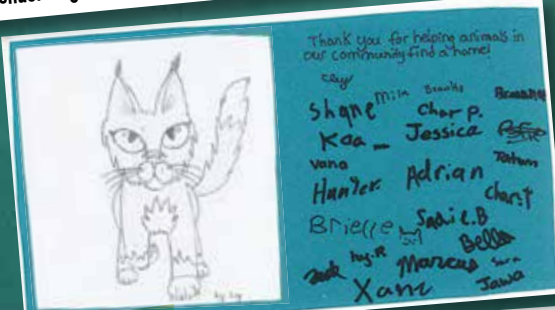 Thank you for helping animals in
our community find a home!
Clay
Shane Mila Brooks
Char P.
Koa Jessica
Vana Tatum
Hunter Adrian
Char.t
Brielle Sadie.B
Bella
Zack hug.R Marcus Sara
Xani Jawa